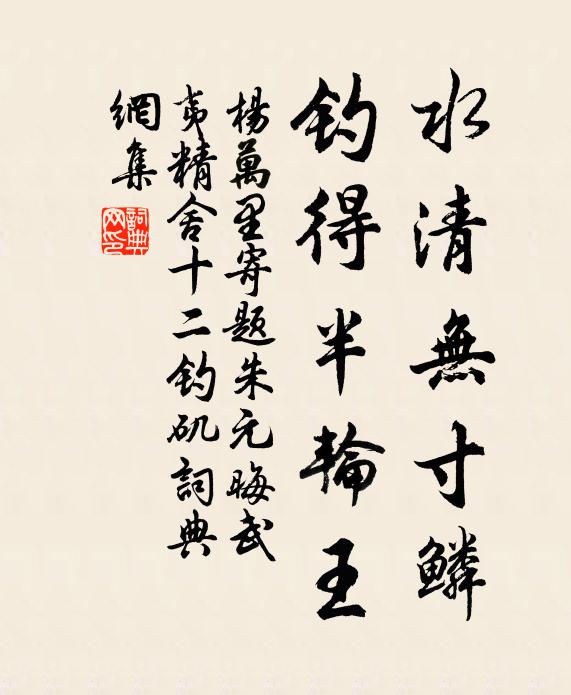 水清無寸鱗
钓得半輪王
楊萬里寄题朱元晦武
夷精舍十二钓矶詞典
網集
詞典
网印